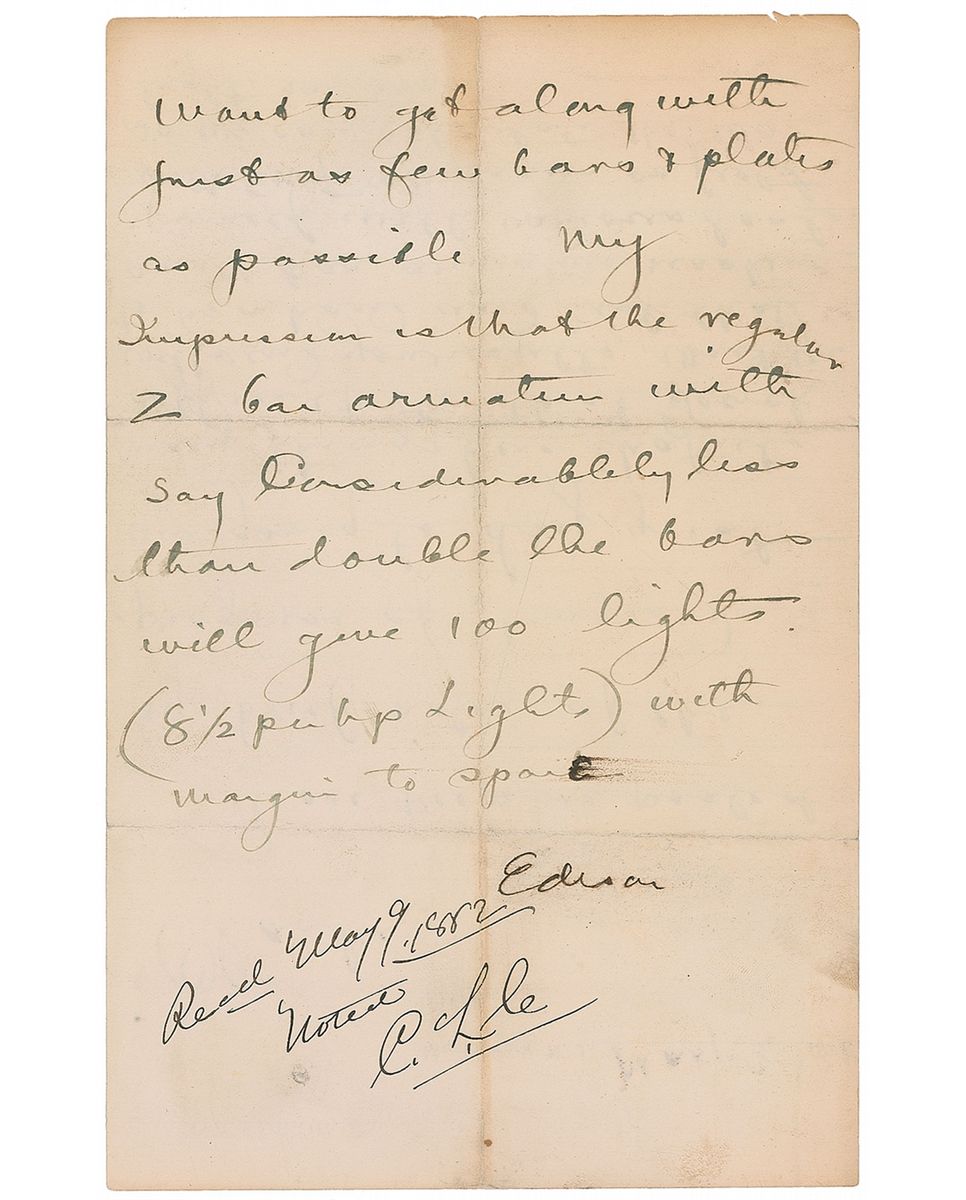 want to get along with
just as few bars & plates
as possible My
Impression is that the regular
Z bar armature with
say Considerablely less
than double the bars
will give 100 lights.
(8 1/2 per hp Lights) with
margin to spare
Edison
Recd May 9, 1882
Noted